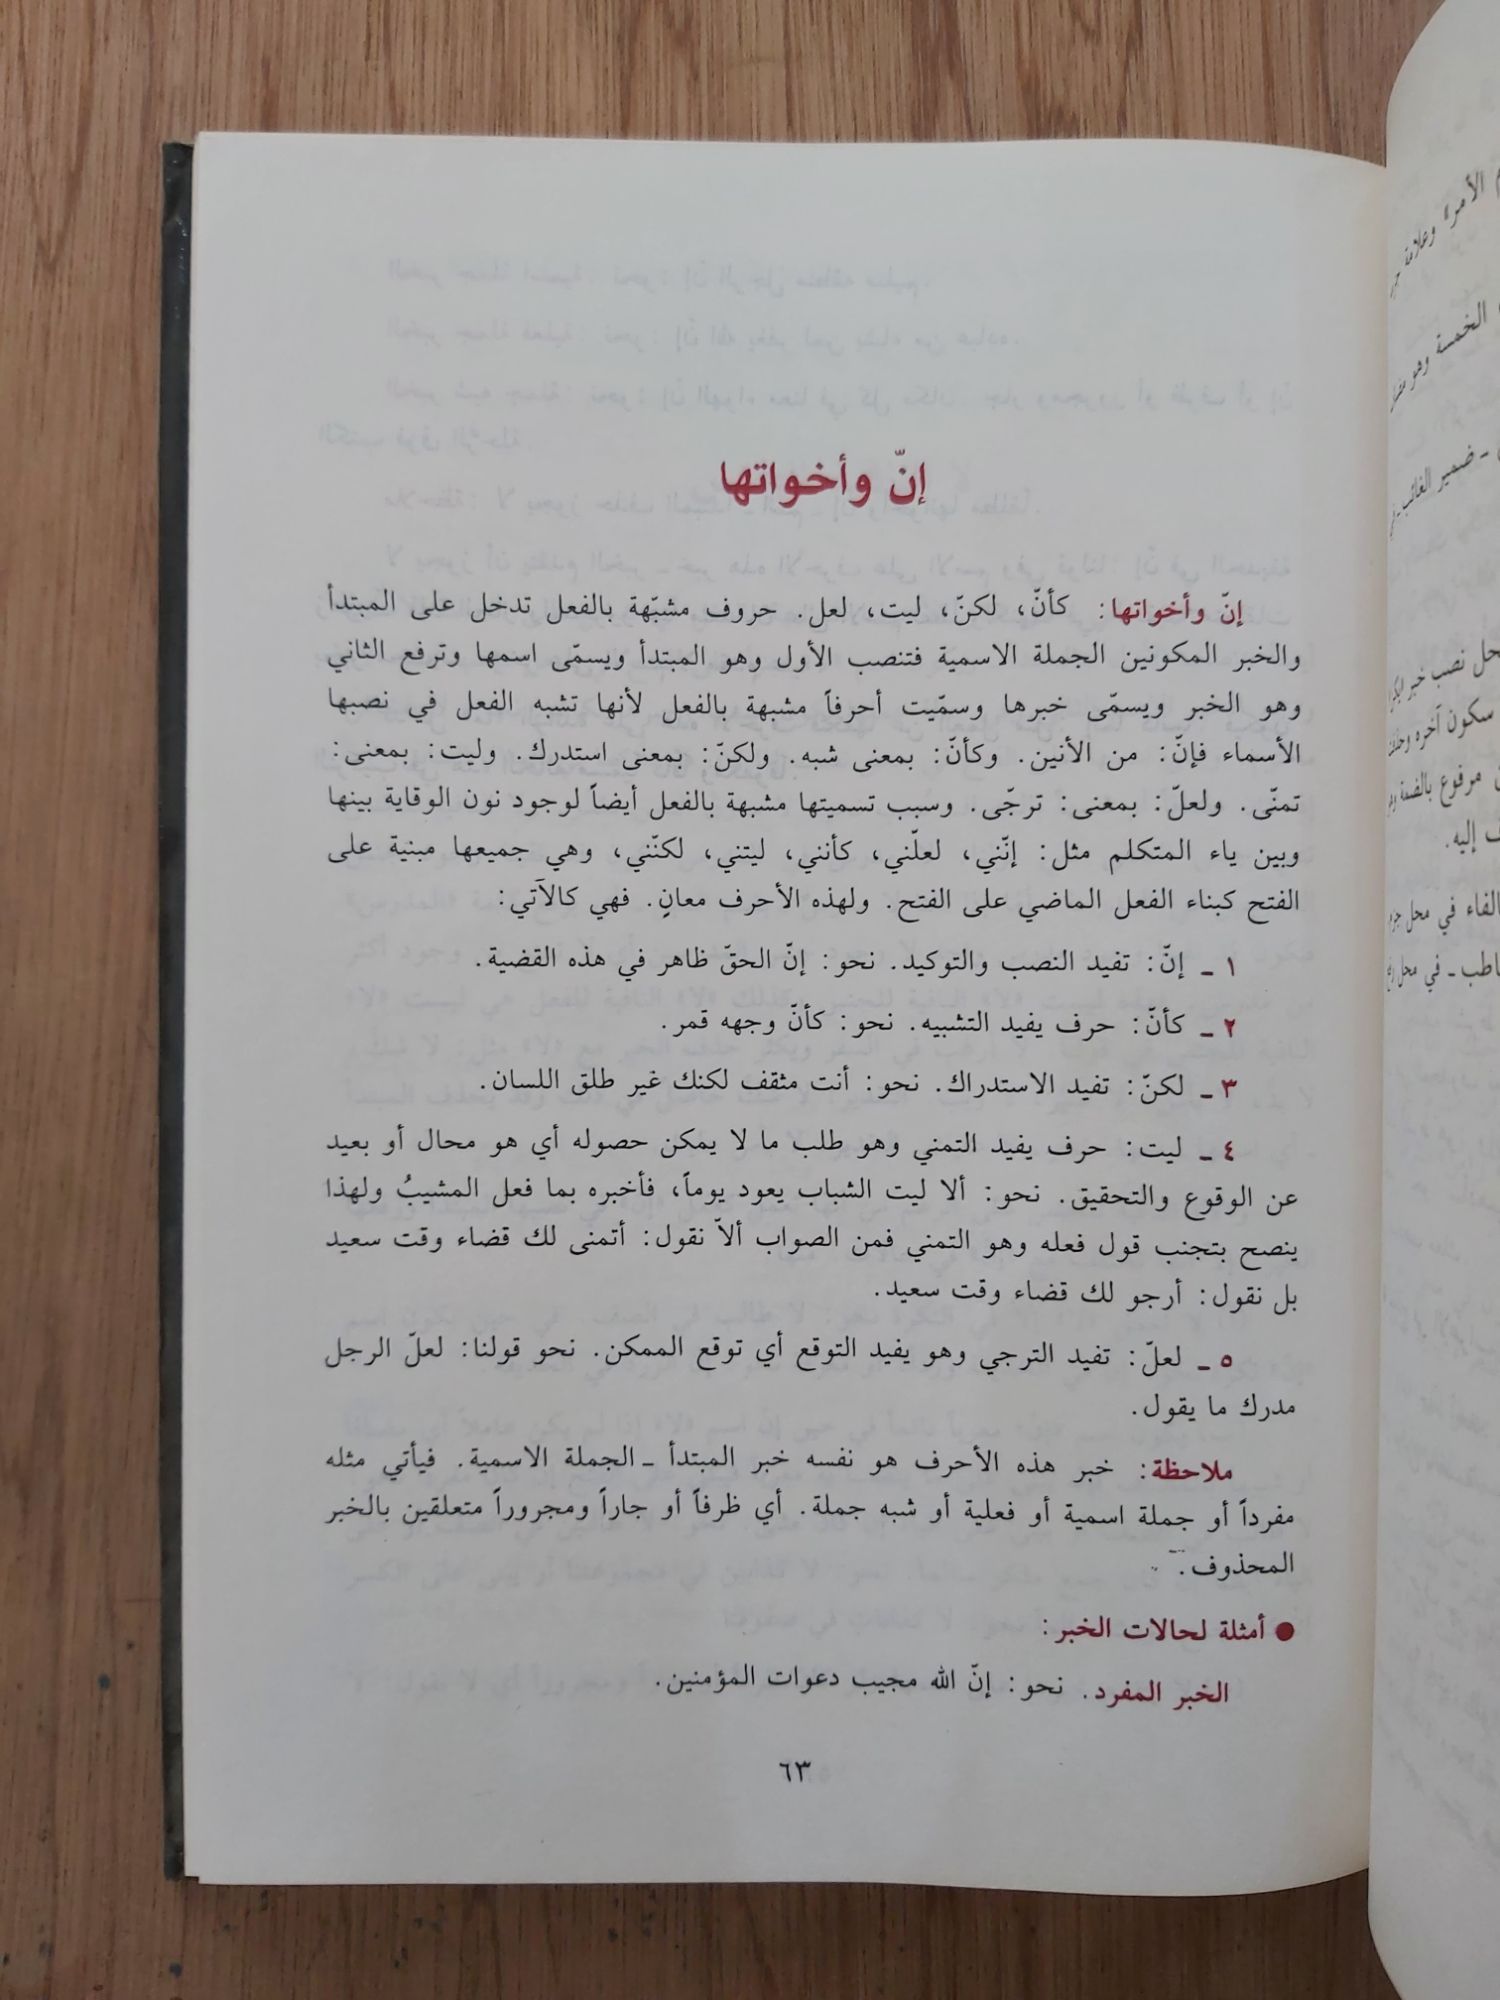 إنّ وأخواتها
إنّ وأخواتها: كأنّ، لكنّ، ليت، لعل. حروف مشبّهة بالفعل تدخل على المبتدأ
والخبر المكونين الجملة الاسمية فتنصب الأول وهو المبتدأ ويسمّى اسمها وترفع الثاني
وهو الخبر ويسمّى خبرها وسمّيت أحرفاً مشبهة بالفعل لأنها تشبه الفعل في نصبها
الأسماء فإنّ: من الأنين. وكأنّ: بمعنى شبه. ولكنّ: بمعنى استدرك. وليت: بمعنى:
تمنّى. ولعلّ: بمعنى: ترجّى. وسبب تسميتها مشبهة بالفعل أيضاً لوجود نون الوقاية بينها
وبين ياء المتكلم مثل: إنّني، لعلّني، كأنني، ليتني، لكنّني، وهي جميعها مبنية على
الفتح كبناء الفعل الماضي على الفتح. ولهذه الأحرف معانٍ. فهي كالآتي:
١ ـ إنّ: تفيد النصب والتوكيد. نحو: إنّ الحقّ ظاهر في هذه القضية.
٢ ـ كأنّ: حرف يفيد التشبيه. نحو: كأنّ وجهه قمر.
٣ ـ لكنّ: تفيد الاستدراك. نحو: أنت مثقف لكنك غير طلق اللسان.
٤ ـ ليت: حرف يفيد التمني وهو طلب ما لا يمكن حصوله أي هو محال أو بعيد
عن الوقوع والتحقيق. نحو: ألا ليت الشباب يعود يوماً، فأخبره بما فعل المشيبُ ولهذا
ينصح بتجنب قول فعله وهو التمني فمن الصواب ألاّ نقول: أتمنى لك قضاء وقت سعيد
بل نقول: أرجو لك قضاء وقت سعيد.
٥ ـ لعلّ: تفيد الترجي وهو يفيد التوقع أي توقع الممكن. نحو قولنا: لعلّ الرجل
مدرك ما يقول.
ملاحظة: خبر هذه الأحرف هو نفسه خبر المبتدأ ـ الجملة الاسمية. فيأتي مثله
مفرداً أو جملة اسمية أو فعلية أو شبه جملة. أي ظرفاً أو جاراً ومجروراً متعلقين بالخبر
المحذوف.
● أمثلة لحالات الخبر:
الخبر المفرد. نحو: إنّ الله مجيب دعوات المؤمنين.
٦٣
الأمر» وعلامة
الخمسة وهو
ـ ضمير الغائب ـ
نصب خبر
سكون آخره
مرفوع بالضمة
إليه.
في محل
ـ في محل